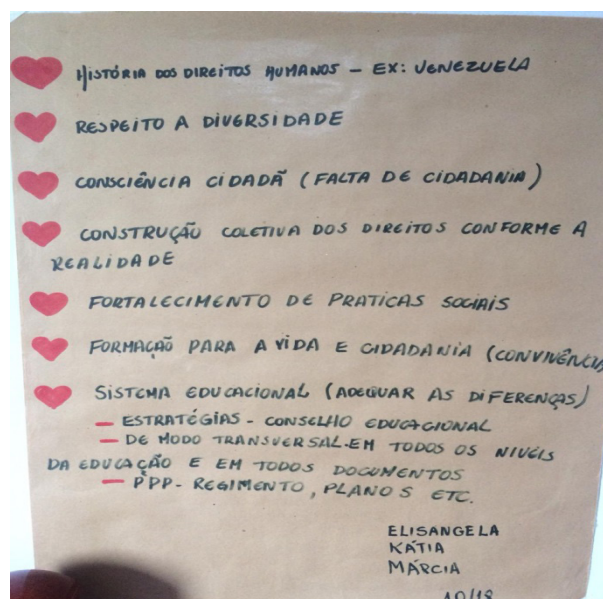 HISTÓRIA DOS DIREITOS HUMANOS - EX: VENEZUELA
RESPEITO A DIVERSIDADE
CONSCIÊNCIA CIDADÃ (FALTA DE CIDADANIA)
CONSTRUÇÃO COLETIVA DOS DIREITOS CONFORME A
REALIDADE
FORTALECIMENTO DE PRATICAS SOCIAIS
FORMAÇÃO PARA A VIDA E CIDADANIA (CONVIVÊNCIA
SISTEMA EDUCACIONAL (ADEQUAR AS DIFERENÇAS)
- ESTRATÉGIAS - CONSELHO EDUCACIONAL
- DE MODO TRANSVERSAL.EM TODOS OS NIVEIS
DA EDUCAÇÃO E EM TODOS DOCUMENTOS
- PPP - REGIMENTO, PLANOS ETC.
ELISANGELA
KÁTIA
MÁRCIA